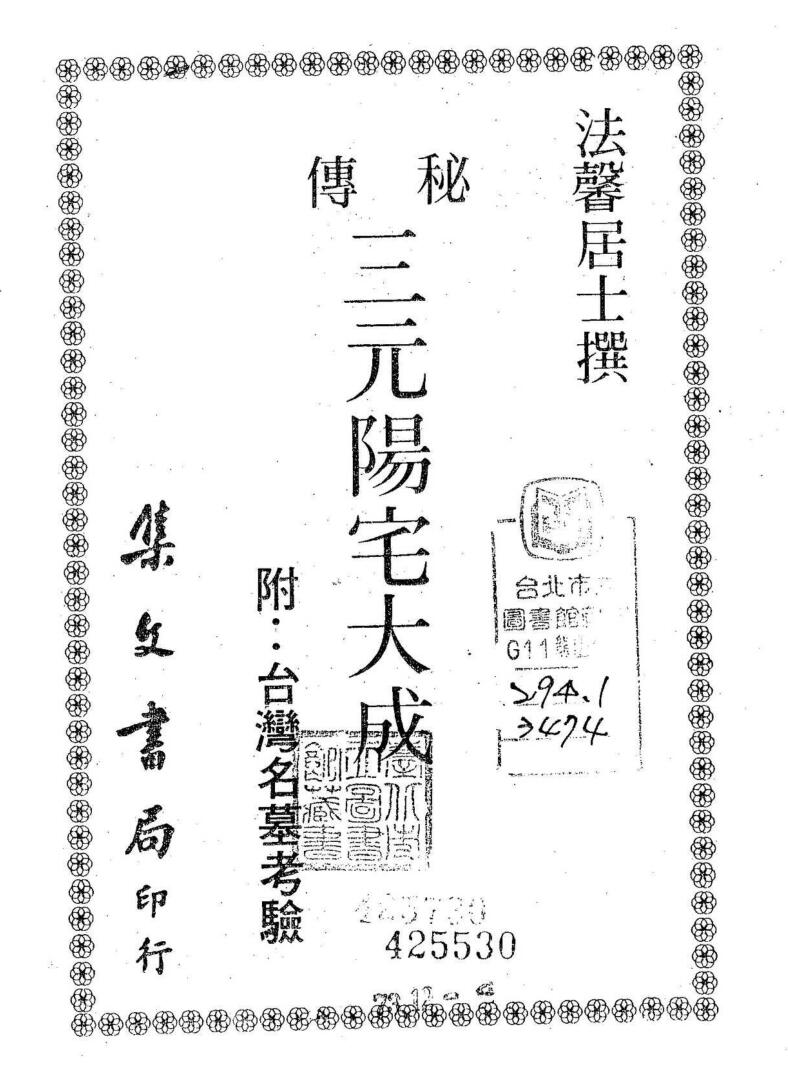 法馨居士撰
秘傳
三元陽宅大成
附：台灣名墓考驗
集文書局印行
台北市
圖書館
G11
294.1
3474
臺北市
立圖書
館藏書
425730
425530